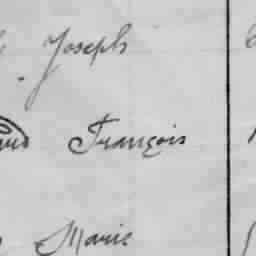 Joseph
François
Marie